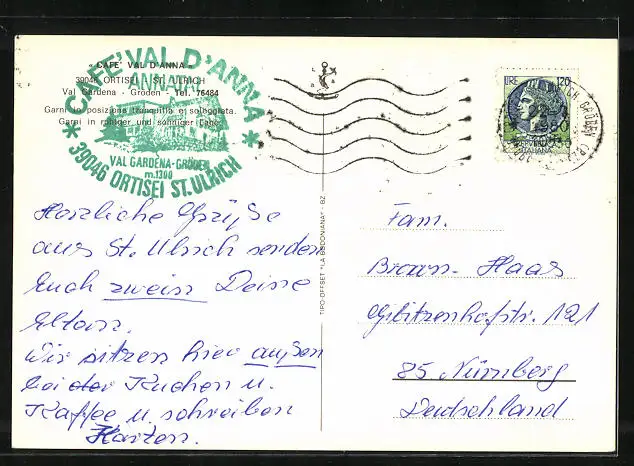 « CAFE' VAL D'ANNA »
39046 ORTISEI - ST. ULRICH
Val Gardena - Gröden - Tel. 76484
Garni in posizione tranquilla e soleggiata.
Garni in ruhiger und sonniger Lage.
* CAFE' VAL D'ANNA *
ANNATAL
VAL GARDENA-GRÖDEN
m.1300
39046 ORTISEI ST.ULRICH
LIRE 120
ITALIANA
Herzliche Grüße
aus St. Ulrich senden
Euch zwein Deine
Eltern.
Wir sitzen hier außen
bei der Kuchen u.
Kaffee u. schreiben
Karten.
TIPO-OFFSET "LA BODONIANA" - BZ
Fam.
Braun-Haas
85 Nürnberg
Deutschland